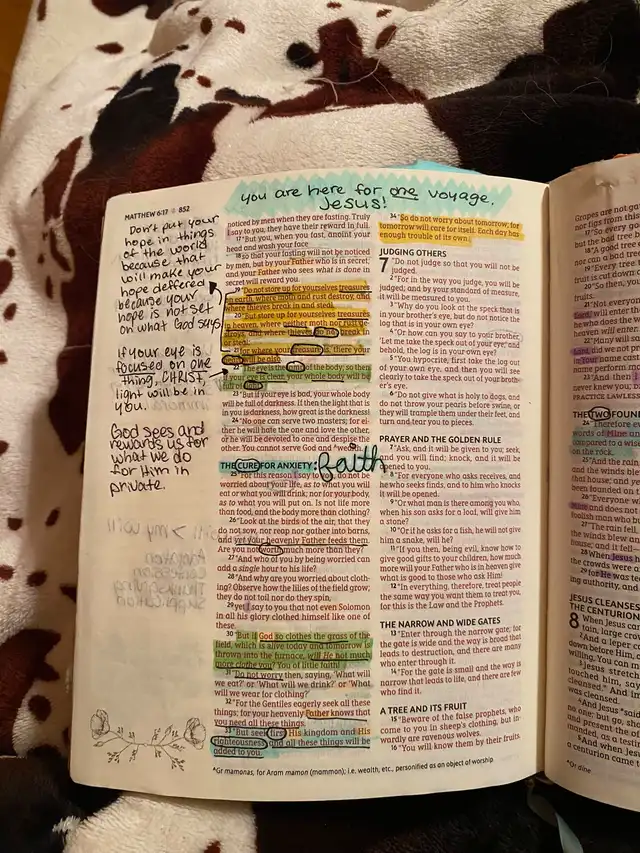 you are here for one voyage.
Jesus!
MATTHEW 6:17 852
Don't put your
hope in things
of the world
because that
will make your
hope deffered
because your
hope is not set
on what God says
If your eye is
focused on one
thing, CHRIST,
light will be in
you.
God sees and
rewards us for
what we do
for Him in
private.
noticed by men when they are fasting. Truly
I say to you, they have their reward in full.
17 "But you, when you fast, anoint your
head and wash your face
18 so that your fasting will not be noticed
by men, but by your Father who is in secret;
and your Father who sees what is done in
secret will reward you.
19 "Do not store up for yourselves treasures
on earth, where moth and rust destroy, and
where thieves break in and steal.
20 "But store up for yourselves treasures
in heaven, where neither moth nor rust de-
stroys, and where thieves do not break in
or steal;
21 for where your treasure is, there your
heart will be also.
22 "The eye is the of the body; so then
if your eye is clear, your whole body will be
full of
23 "But if your eye is bad, your whole body
will be full of darkness. If then the light that is
in you is darkness, how great is the darkness!
24 "No one can serve two masters; for ei-
ther he will hate the one and love the other,
or he will be devoted to one and despise the
other. You cannot serve God and *wealth.
THE CURE FOR ANXIETY: faith
25 "For this reason I say to you, do not be
worried about your life, as to what you will
eat or what you will drink; nor for your body,
as to what you will put on. Is not life more
than food, and the body more than clothing?
26 "Look at the birds of the air, that they
do not sow, nor reap nor gather into barns,
and yet your heavenly Father feeds them.
Are you not worth much more than they?
27 "And who of you by being worried can
add a single hour to his life?
28 "And why are you worried about cloth-
ing? Observe how the lilies of the field grow;
they do not toil nor do they spin,
29 yet I say to you that not even Solomon
in all his glory clothed himself like one of
these.
30 "But if God so clothes the grass of the
field, which is alive today and tomorrow is
thrown into the furnace, will He not much
more clothe you? You of little faith!
31 "Do not worry then, saying, 'What will
we eat?' or 'What will we drink?' or 'What
will we wear for clothing?'
32 "For the Gentiles eagerly seek all these
things; for your heavenly Father knows that
you need all these things.
33 "But seek first His kingdom and His
righteousness, and all these things will be
added to you.
34 "So do not worry about tomorrow; for
tomorrow will care for itself. Each day has
enough trouble of its own.
JUDGING OTHERS
7 "Do not judge so that you will not be
judged.
2 "For in the way you judge, you will be
judged; and by your standard of measure,
it will be measured to you.
3 "Why do you look at the speck that is
in your brother's eye, but do not notice the
log that is in your own eye?
4 "Or how can you say to your brother,
'Let me take the speck out of your eye,' and
behold, the log is in your own eye?
5 "You hypocrite, first take the log out
of your own eye, and then you will see
clearly to take the speck out of your broth-
er's eye.
6 "Do not give what is holy to dogs, and
do not throw your pearls before swine, or
they will trample them under their feet, and
turn and tear you to pieces.
PRAYER AND THE GOLDEN RULE
7 "Ask, and it will be given to you; seek,
and you will find; knock, and it will be
opened to you.
8 "For everyone who asks receives, and
he who seeks finds, and to him who knocks
it will be opened.
9 "Or what man is there among you who,
when his son asks for a loaf, will give him
a stone?
10 "Or if he asks for a fish, he will not give
him a snake, will he?
11 "If you then, being evil, know how to
give good gifts to your children, how much
more will your Father who is in heaven give
what is good to those who ask Him!
12 "In everything, therefore, treat people
the same way you want them to treat you,
for this is the Law and the Prophets.
THE NARROW AND WIDE GATES
13 "Enter through the narrow gate; for
the gate is wide and the way is broad that
leads to destruction, and there are many
who enter through it.
14 "For the gate is small and the way is
narrow that leads to life, and there are few
who find it.
A TREE AND ITS FRUIT
15 "Beware of the false prophets, who
come to you in sheep's clothing, but in-
wardly are ravenous wolves.
16 "You will know them by their fruits.
*Gr mamonas, for Aram mamon (mammon); i.e. wealth, etc., personified as an object of worship
Grapes are not ga
nor figs from this
17 "So every goo
but the bad tree b
18 "A good tree
nor can a bad tree
19 "Every tree t
20 "So then, you
fruits.
21 "Not everyone
Lord,' will enter th
he who does the w
heaven will enter.
22 "Many will sa
Lord, did we not pr
in Your name cast
name perform m
23 "And then I
never knew you;
PRACTICE LAWLESS
THE TWO FOUN
24 "Therefore ev
words of Mine an
compared to a wise
on the rock.
25 "And the rain
and the winds ble
that house; and yet
been founded on t
26 "Everyone w
Mine and does not
foolish man who b
27 "The rain fell,
the winds blew an
house; and it fell—
28 When Jesus h
the crowds were a
29 for He was te
ing authority, and
JESUS CLEANSES
THE CENTURION
8 When Jesus ca
tain, large crow
2 And a leper c
down before Him,
willing, You can m
3 Jesus stretch
touched him, say
cleansed." And im
was cleansed.
4 And Jesus *said
no one; but go, sho
and present the of
manded, as a testi
5 And when Jesu
a centurion came t
*Or dine